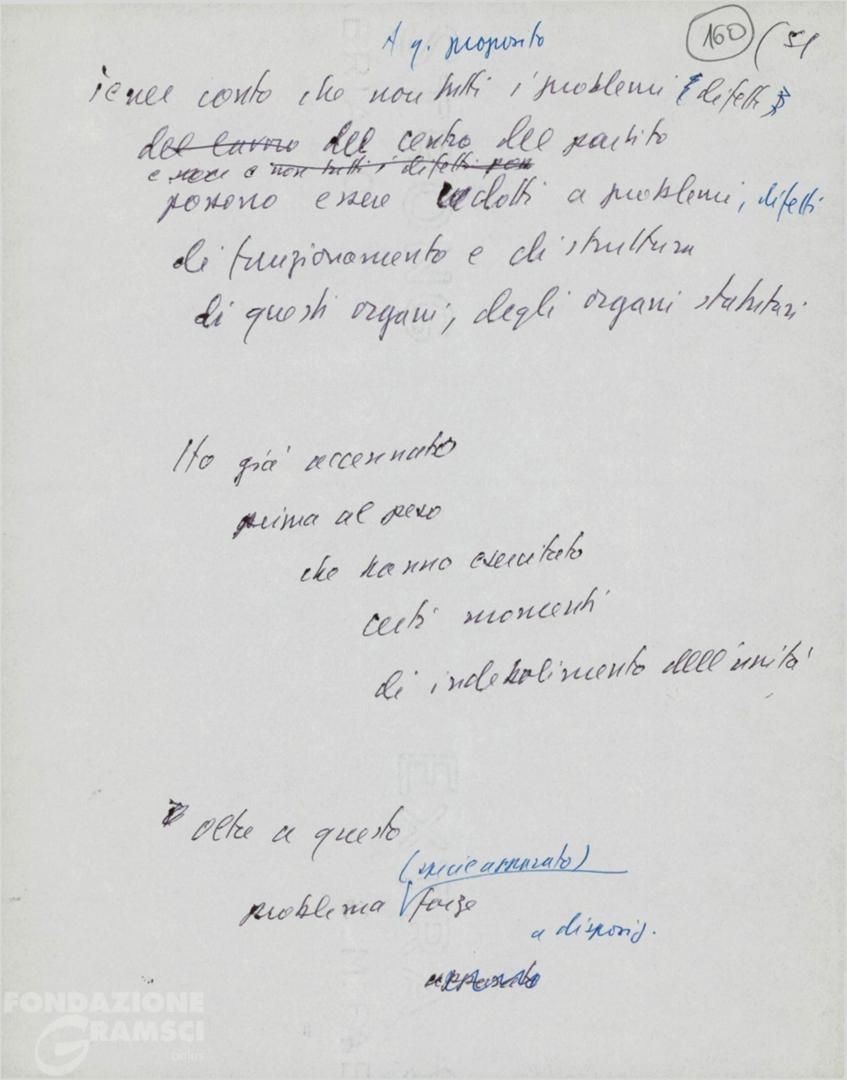 A q. proposito
160 (51
Tener conto che non tutti i problemi e difetti
del lavoro del centro del partito
e non tutti i difetti
possono essere ridotti a problemi, difetti
di funzionamento e di struttura
di questi organi, degli organi statutari
Ho già accennato
prima al peso
che hanno esercitato
certi momenti
di indebolimento dell'unità
oltre a questo
(specie apparato)
problema forze
a disposiz.
apparato
FONDAZIONE
GRAMSCI
onlus